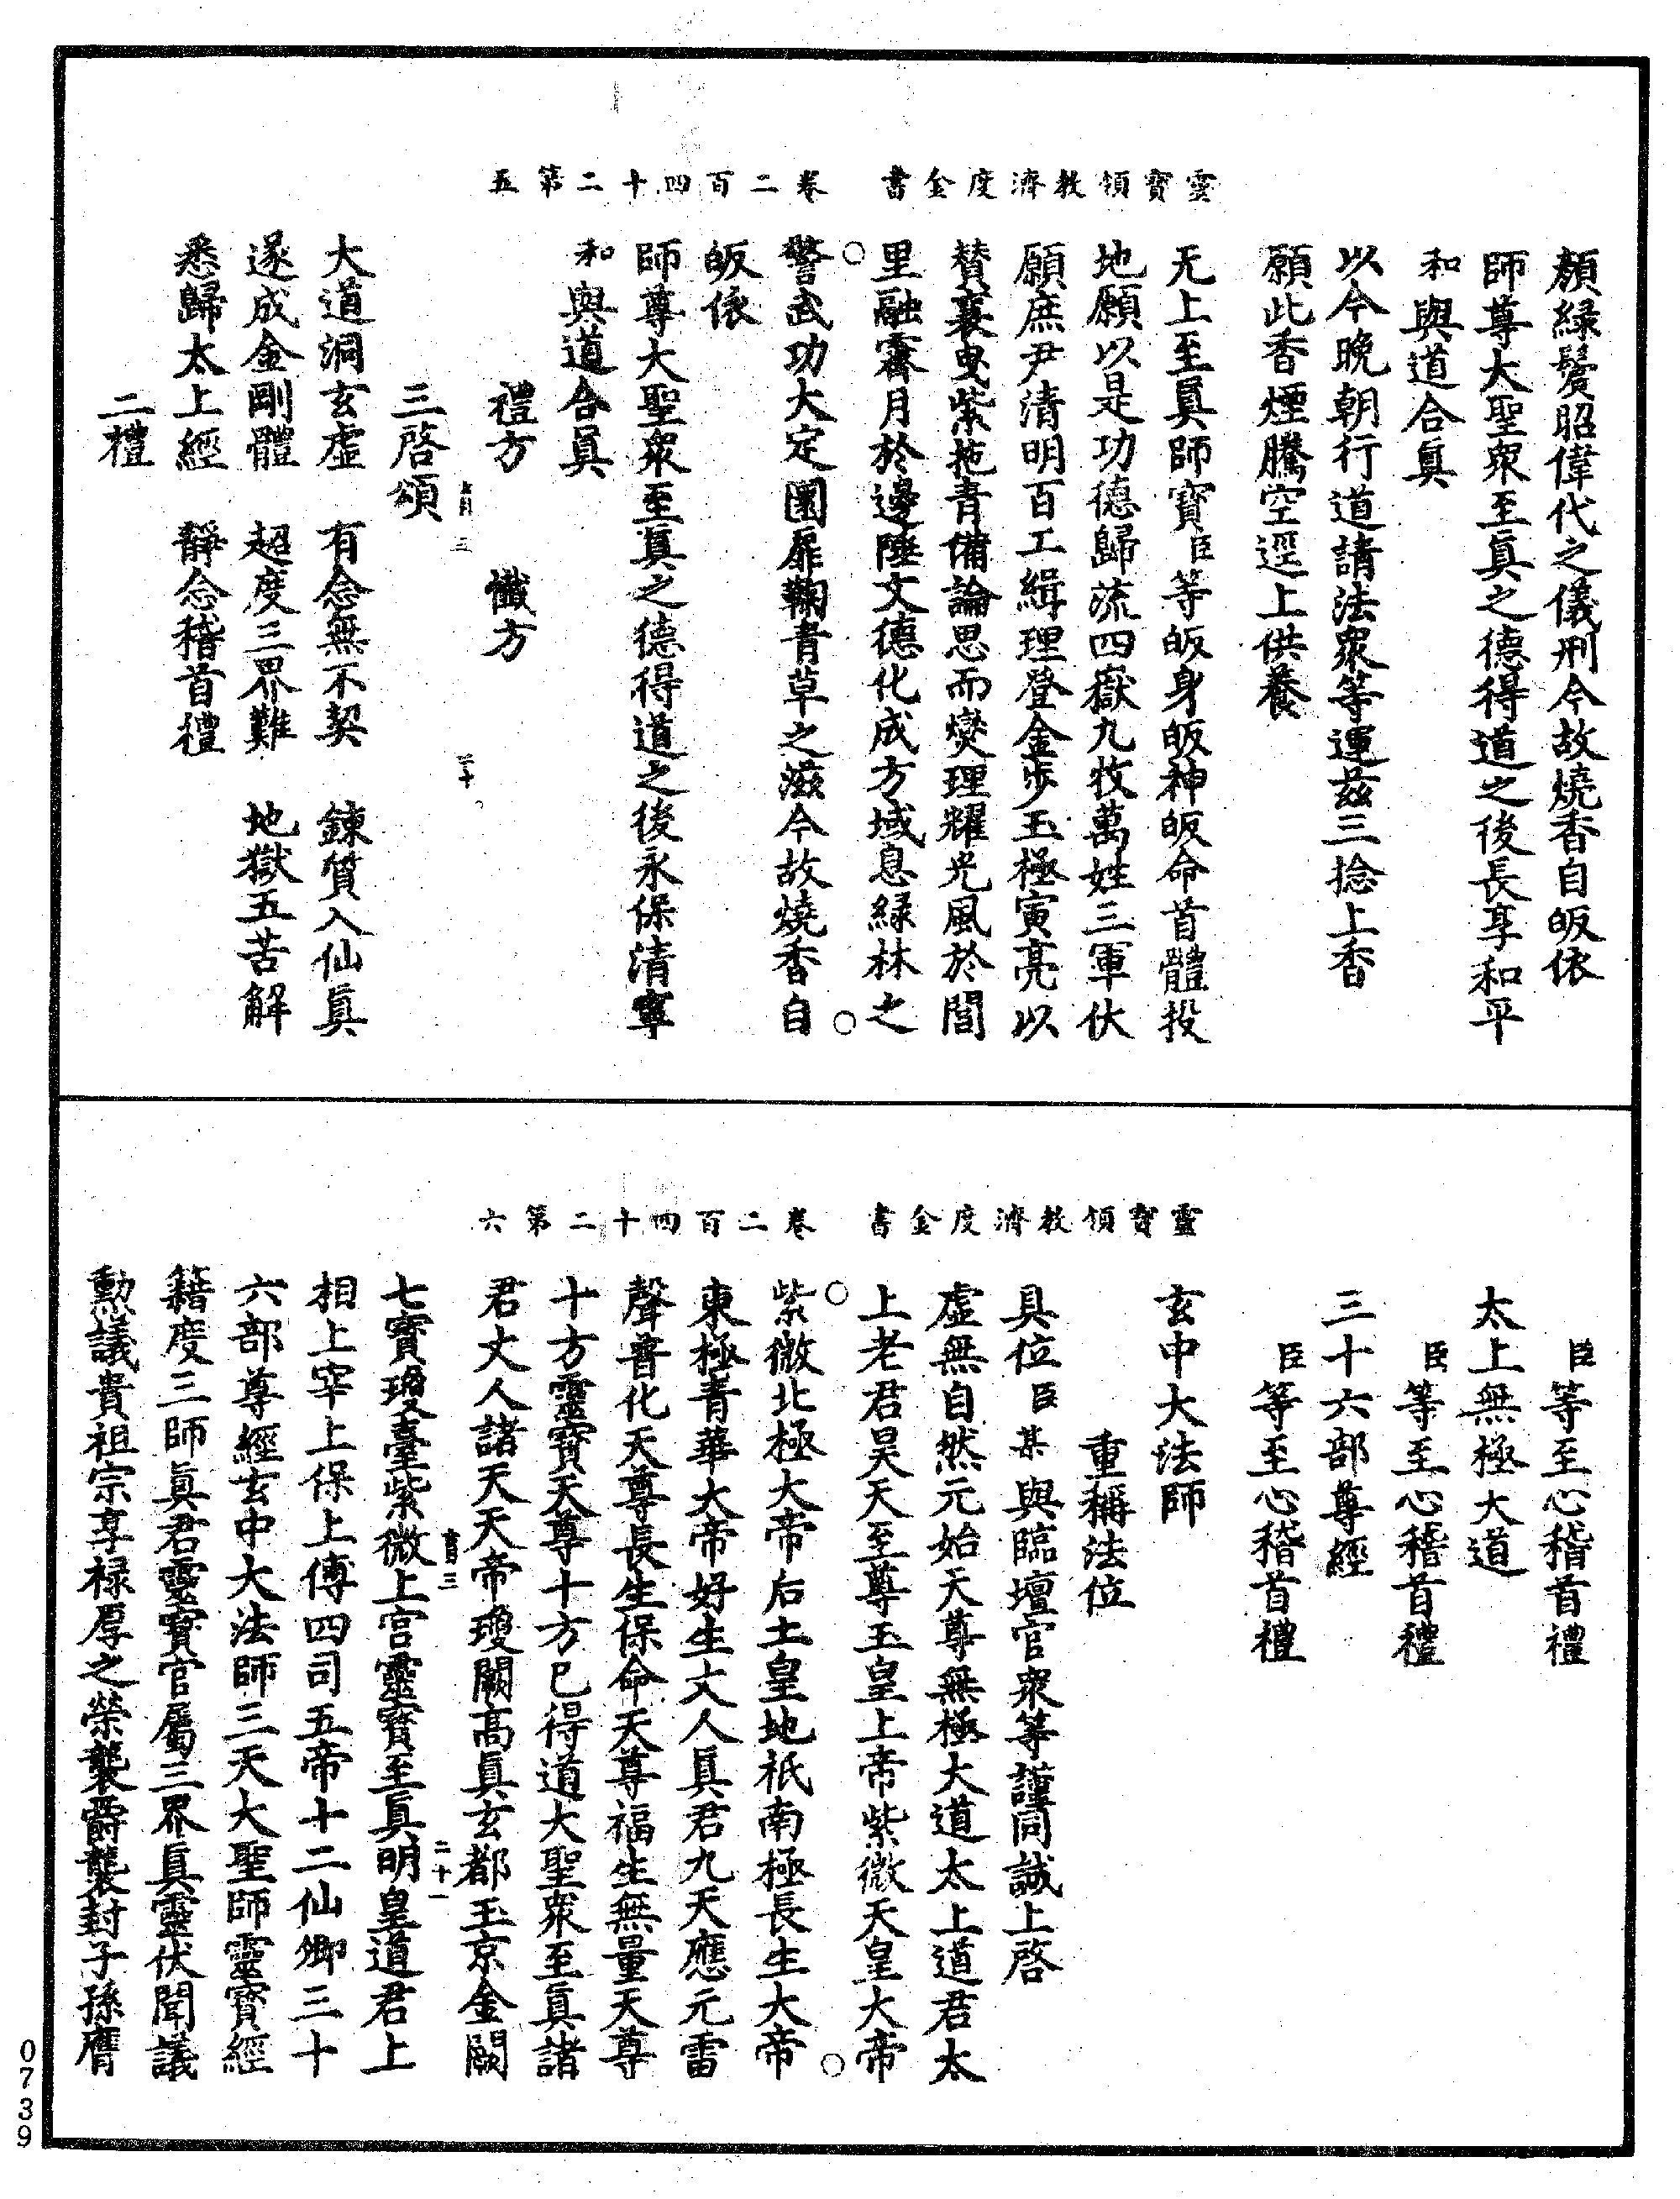 靈寶領教濟度金書　卷二百四十二第五
顏綠鬢昭偉代之儀刑今故燒香自皈依
師尊大聖衆至眞之德得道之後長享和平
和與道合眞
以今晚朝行道請法衆等運玆三捻上香
願此香煙騰空逕上供養
无上至眞師寶臣等皈身皈神皈命首體投
地願以是功德歸流四嶽九牧萬姓三軍伏
願庶尹清明百工緝理登金步玉極寅亮以
賛襄曳紫拖青備論思而爕理耀光風於閭
里融霽月於邊陲文德化成方域息綠林之
警武功大定圜扉鞠青草之滋今故燒香自
皈依
師尊大聖衆至眞之德得道之後永保清寧
和與道合眞
禮方　懺方
三啓頌
大道洞玄虛　有念無不契　鍊質入仙眞
遂成金剛體　超度三界難　地獄五苦解
悉歸太上經　靜念稽首禮
二禮
靈寶領教濟度金書　卷二百四十二第六
臣等至心稽首禮
太上無極大道
臣等至心稽首禮
三十六部尊經
臣等至心稽首禮
玄中大法師
重稱法位
具位臣某與臨壇官衆等謹同誠上啓
虛無自然元始天尊無極大道太上道君太
上老君昊天至尊玉皇上帝紫微天皇大帝
紫微北極大帝后土皇地祇南極長生大帝
東極青華大帝好生丈人眞君九天應元雷
聲普化天尊長生保命天尊福生無量天尊
十方靈寶天尊十方已得道大聖衆至眞諸
君丈人諸天天帝瓊闕高眞玄都玉京金闕
七寶瓊臺紫微上宮靈寶至眞明皇道君上
相上宰上保上傅四司五帝十二仙卿三十
六部尊經玄中大法師三天大聖師靈寶經
籍度三師眞君靈寶官屬三界眞靈伏聞議
勳議貴祖宗享祿厚之榮襲爵襲封子孫膺
0739